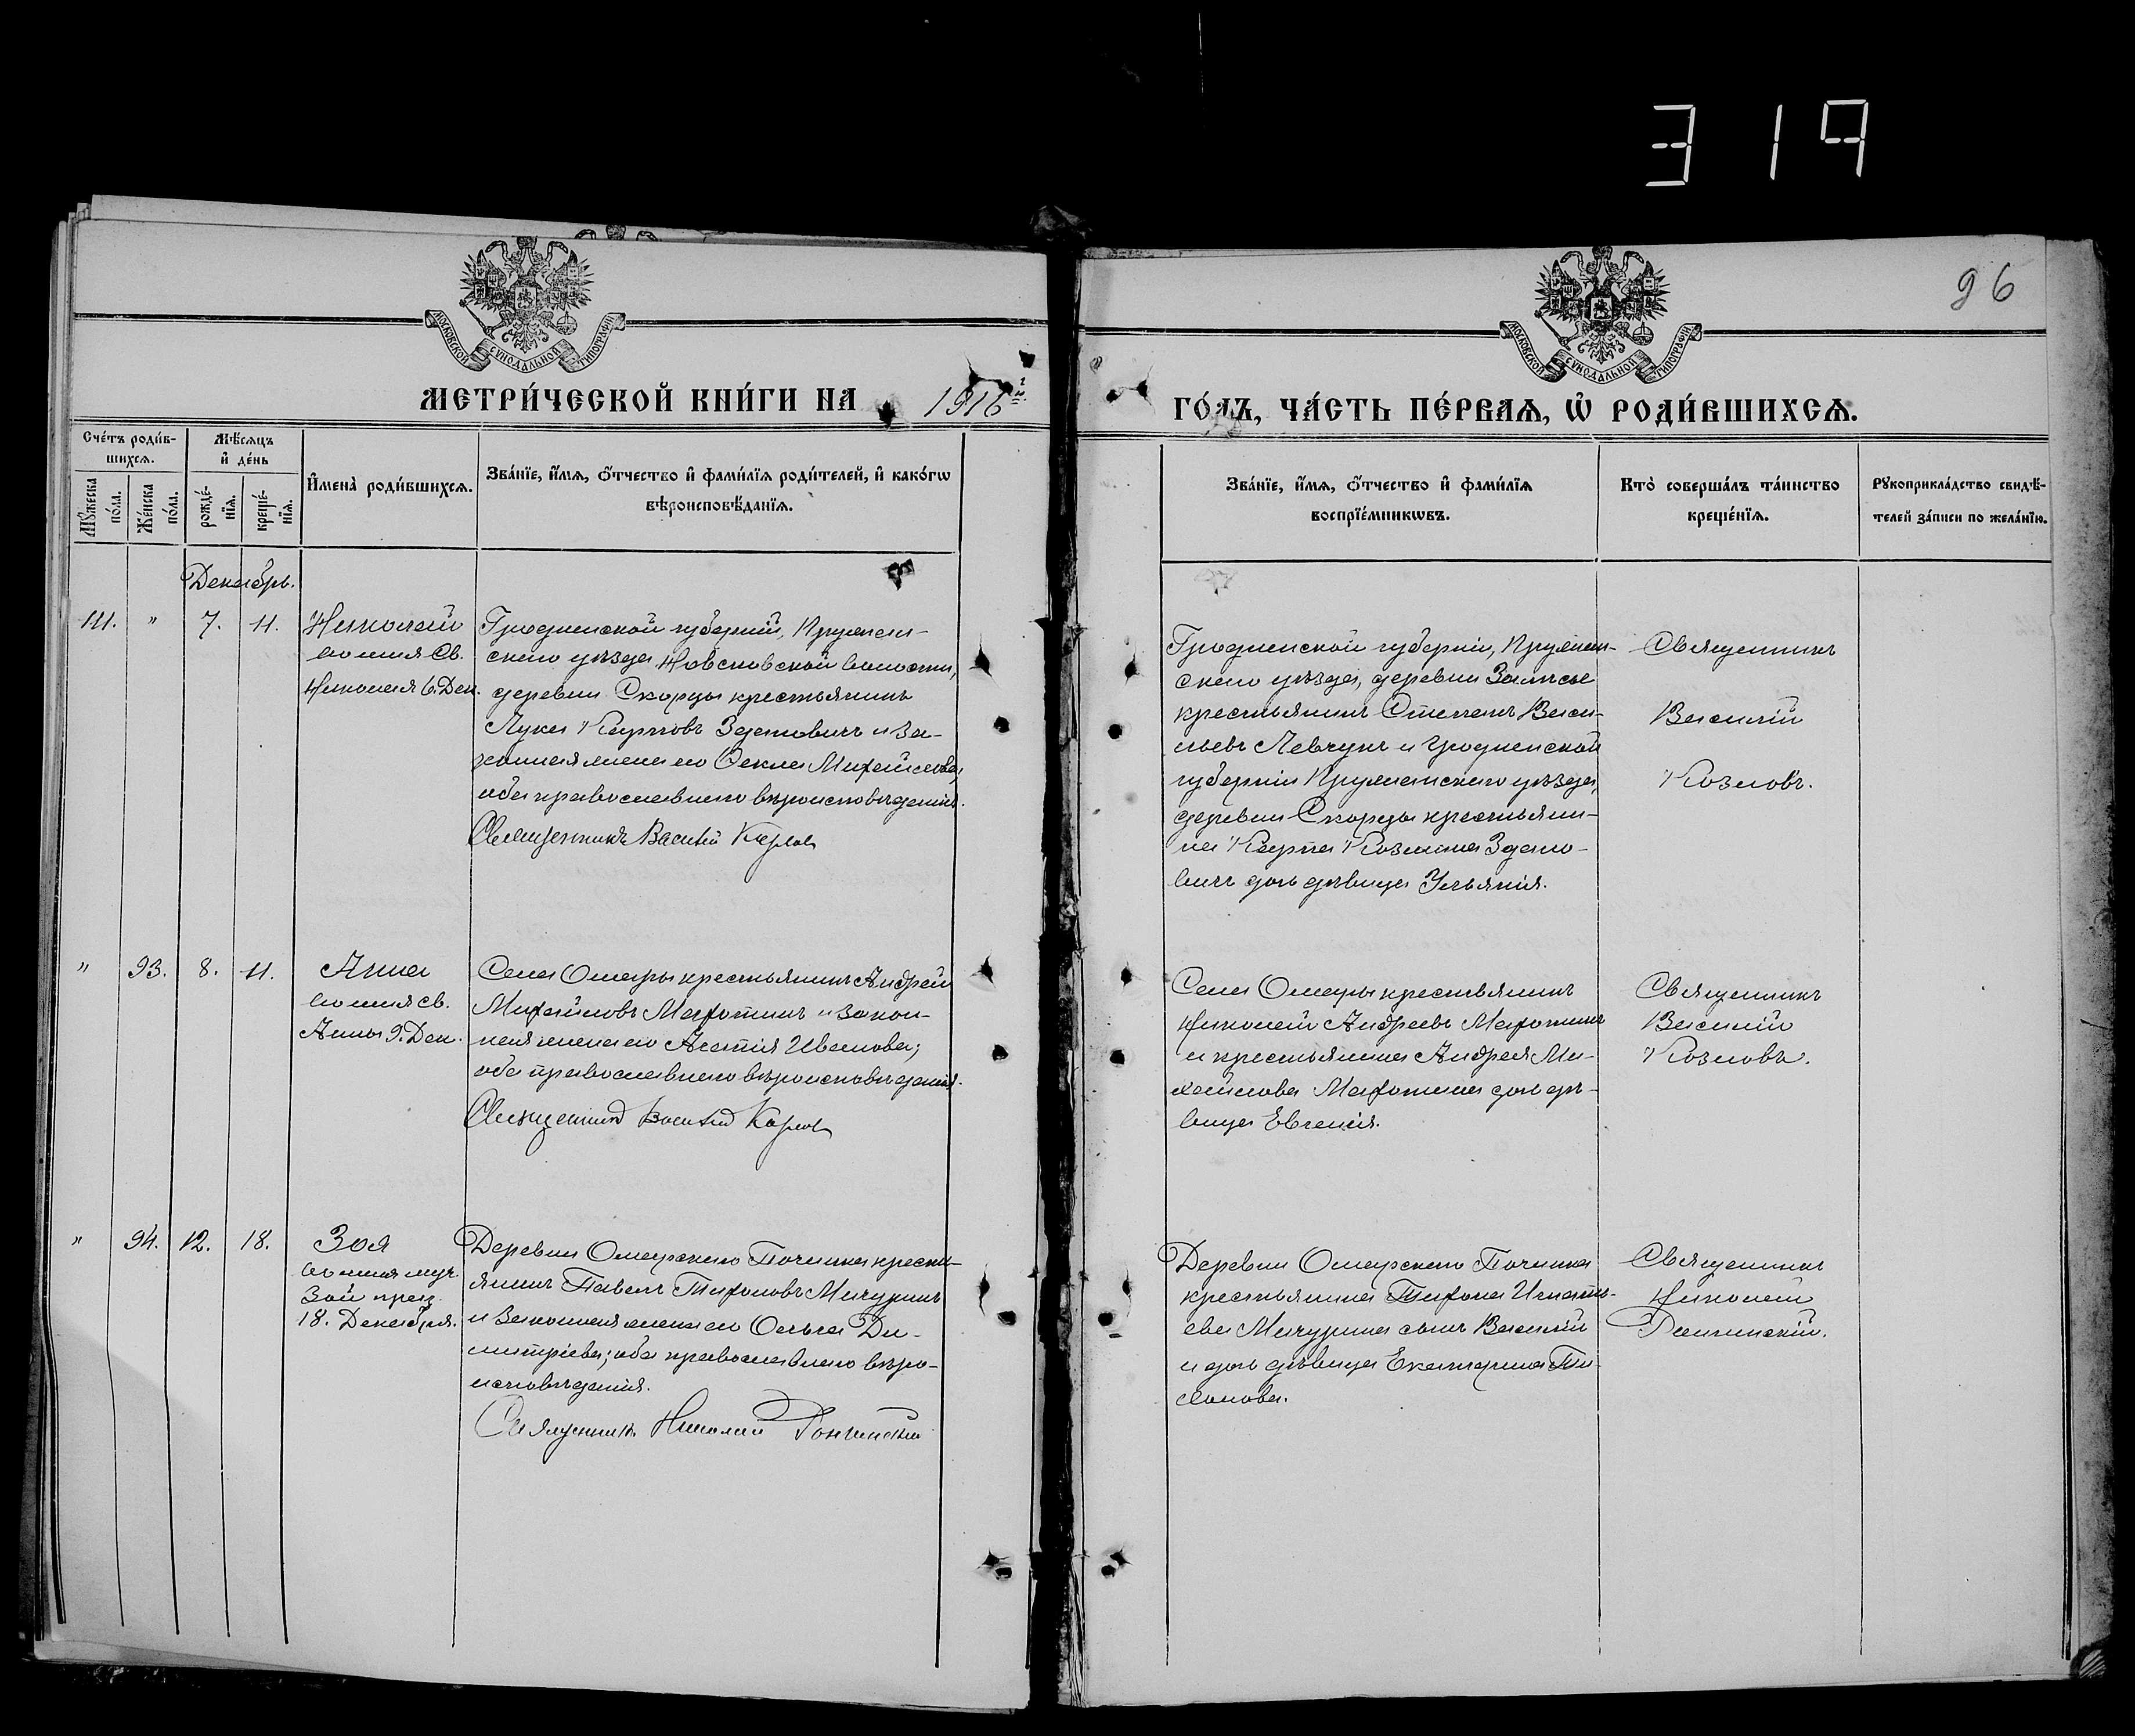 319
96
МОСКОВСКОЙ СѴНОДАЛЬНОЙ ТИПОГРАФІИ
МОСКОВСКОЙ СѴНОДАЛЬНОЙ ТИПОГРАФІИ
МЕТРИ́ЧЕСКОЙ КНИ́ГИ НА 1916 г.
ГО́ДЪ, ЧА́СТЬ ПЕ́РВАЯ, Ѡ҆ РОДИ́ВШИХСЯ.
Сче́тъ роди́вшихся.
Мꙋ́жеска по́ла.
Же́нска по́ла.
Мѣ́сяцъ и҆ де́нь
рожде́нїя.
креще́нїя.
И҆мена̀ роди́вшихся.
Зва́нїе, и҆́мя, ѻ҆́тчество и҆ фами́лїя роди́телей, и҆ како́гѡ
вѣроисповѣ́данїя.
Зва́нїе, и҆́мя, ѻ҆́тчество и҆ фами́лїя
воспрїе́мникѡвъ.
Кто̀ соверша́лъ та́инство
креще́нїя.
Рꙋкоприкла́дство свидѣ́-
телей за́писи по жела́нїю.
Декабрь.
111. " 7. 11.
Николай
во имя Св.
Николая 6. Дек.
Гродненской губерніи, Пружан-
скаго уѣзда, волости,
деревни Скорцы крестьянинъ
Лука Карповъ Зданович и за-
конная жена его Ѳекла Михайлова,
оба православнаго вѣроисповѣданія.
Священникъ Василій
Гродненской губерніи, Пружан-
скаго уѣзда, деревни Залѣсье
крестьянинъ Степанъ Васи-
льевъ Левчукъ и Гродненской
губерніи Пружанскаго уѣзда,
деревни Скорцы крестьяни-
на Карпа Козьмина Здано-
вичъ дочь дѣвица Ульянія.
Священникъ
Василій
Козловъ.
" 93. 8. 11.
Анна
во имя св.
Анны 9. Дек.
Села Омары крестьянинъ Андрей
Михайловъ Махотинъ и закон-
ная жена его Агапія Иванова;
оба православнаго вѣроисповѣданія.
Священникъ Василій
Села Омары крестьянинъ
Николай Андреевъ Махотинъ
и крестьянина Андрея Ми-
хайлова Махотина дочь дѣ-
вица Евгенія.
Священникъ
Василій
Козловъ.
" 94. 12. 18.
Зоя
во имя муч.
Зои праз.
18. Декабря.
Деревни Омарскаго Починка кресть-
янинъ Павелъ Тихоновъ Мичуринъ
и законная жена его Ольга Ди-
митріева; оба православнаго вѣро-
исповѣданія.
Священникъ Николай
Деревни Омарскаго Починка
крестьянина Тихона Игнать-
ева Мичурина сынъ Василій
и дочь дѣвица Екатерина Ти-
хонова.
Священникъ
Николай